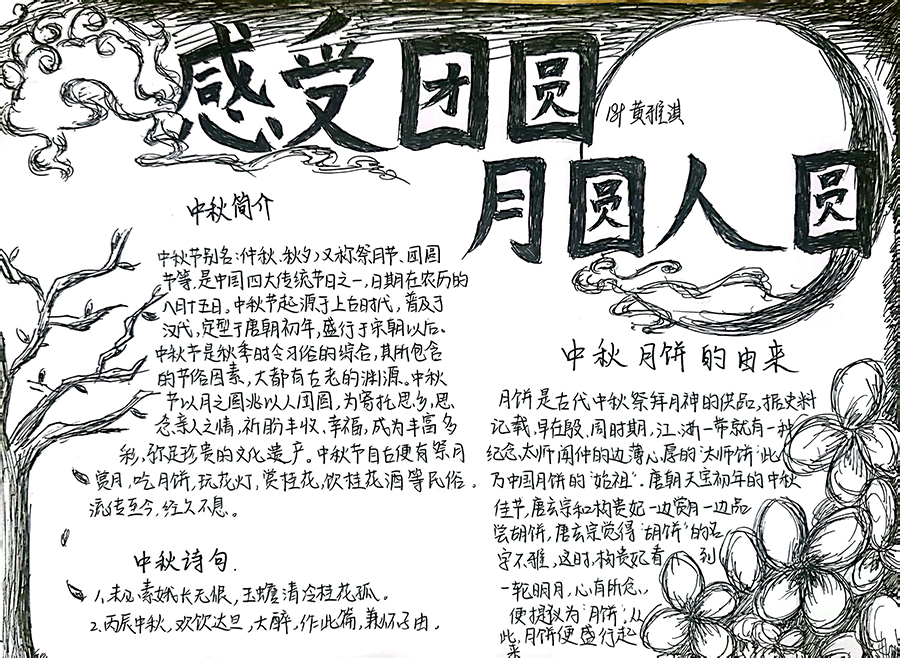 感受团圆
181 黄雅淇
月圆人圆
中秋简介
中秋节别名:(仲秋、秋夕)又称祭月节、团圆
节等,是中国四大传统节日之一,日期在农历的
八月十五日。中秋节起源于上古时代,普及于
汉代,定型于唐朝初年,盛行于宋朝以后。
中秋节是秋季时令习俗的综合,其所包含
的节俗因素,大都有古老的渊源。中秋
节以月之圆兆以人团圆,为寄托思乡,思
念亲人之情,祈盼丰收、幸福,成为丰富多
彩,弥足珍贵的文化遗产。中秋节自古便有祭月
赏月,吃月饼,玩花灯,赏桂花,饮桂花酒等民俗。
流传至今,经久不息。
中秋诗句.
1、未必素娥长无恨,玉蟾清冷桂花孤。
2、丙辰中秋,欢饮达旦,大醉,作此篇,兼怀子由。
中秋月饼的由来
月饼是古代中秋祭拜月神的供品,据史料
记载,早在殷、周时期,江、浙一带就有一种
纪念太师闻仲的边薄心厚的"太师饼"此
乃中国月饼的"始祖"。唐朝天宝初年的中秋
佳节,唐玄宗和杨贵妃一边赏月一边品
尝胡饼,唐玄宗觉得"胡饼"的名
字不雅,这时,杨贵妃看到
一轮明月,心有所念,
便提议为"月饼",从
此,月饼便盛行起
来